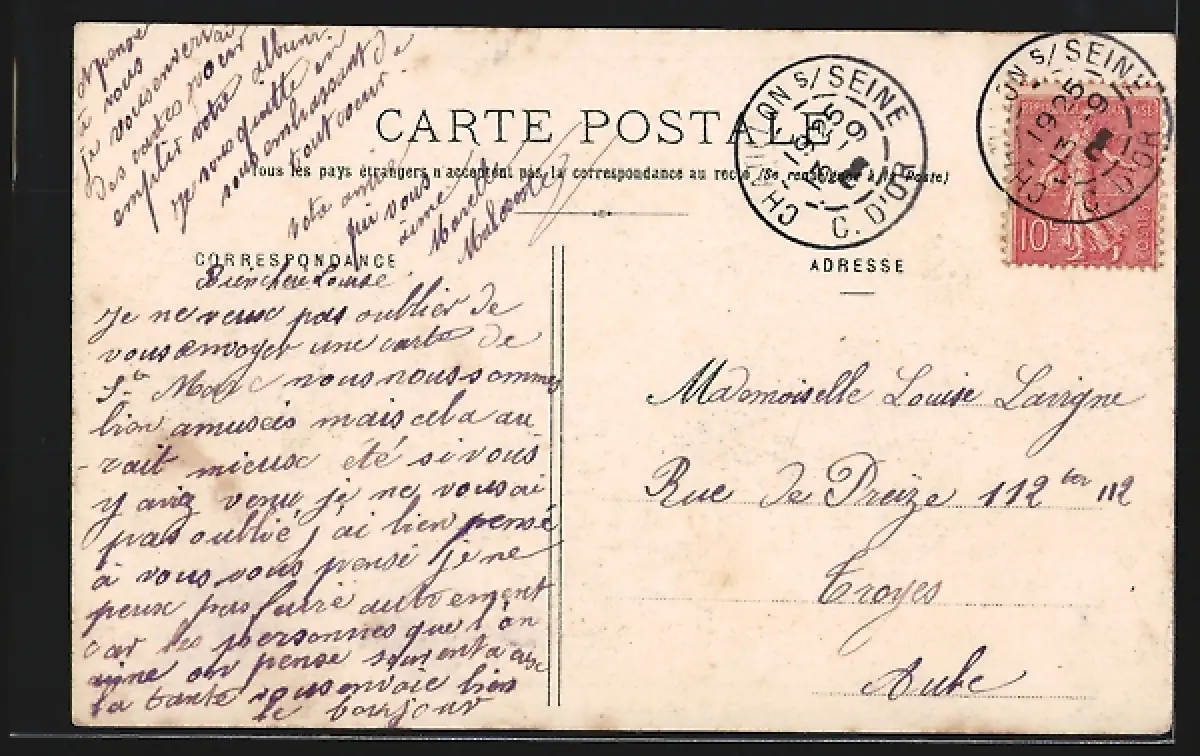 CARTE POSTALE
Tous les pays étrangers n'acceptent pas la correspondance au recto (Se renseigner à la Poste)
CORRESPONDANCE
Bien chère Louise
Je ne veux pas oublier de
vous envoyer une carte de
Ste Marc nous nous sommes
bien amusées mais cela au-
-rait mieux été si vous
y aviez venu, je ne vous ai
pas oublié j'ai bien pensé
à vous vous pensé je ne
peux pas faire autrement
car les personnes que l'on
aime on pense souvent à
la tante vous envoie bien
le bonjour
à vous
je vous enverrai
des cartes pour
emplir votre album.
je vous quitte en
vous embrassant de
tout coeur.
votre amie
qui vous
aime
ADRESSE
Mademoiselle Louise Lavigne
Rue de Preize 112 ter 112
Troyes
Aube
CHATILLON S/ SEINE
C. D'OR
CHATILLON S/ SEINE
C. D'OR
10c